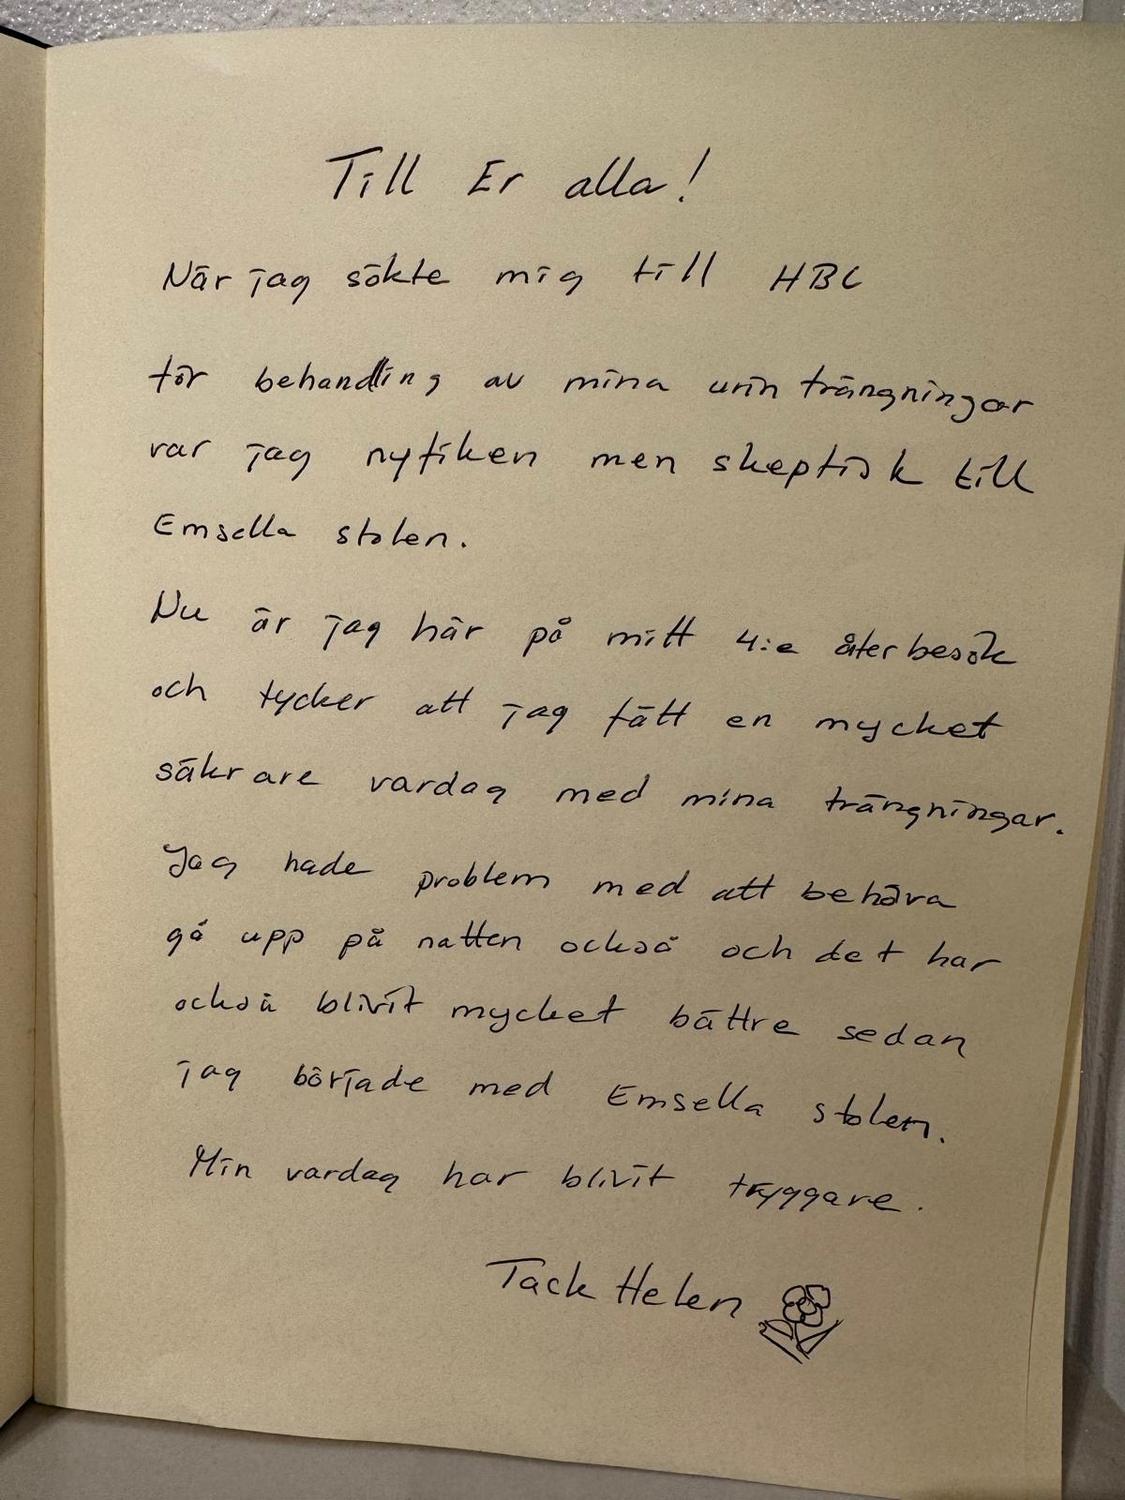 Till Er alla!
När jag sökte mig till HBC
för behandling av mina urin trängningar
var jag nyfiken men skeptisk till
Emsella stolen.
Nu är jag här på mitt 4:e återbesök
och tycker att jag fått en mycket
säkrare vardag med mina trängningar.
Jag hade problem med att behöva
gå upp på natten också och det har
också blivit mycket bättre sedan
jag började med Emsella stolen.
Min vardag har blivit tryggare.
Tack Helen